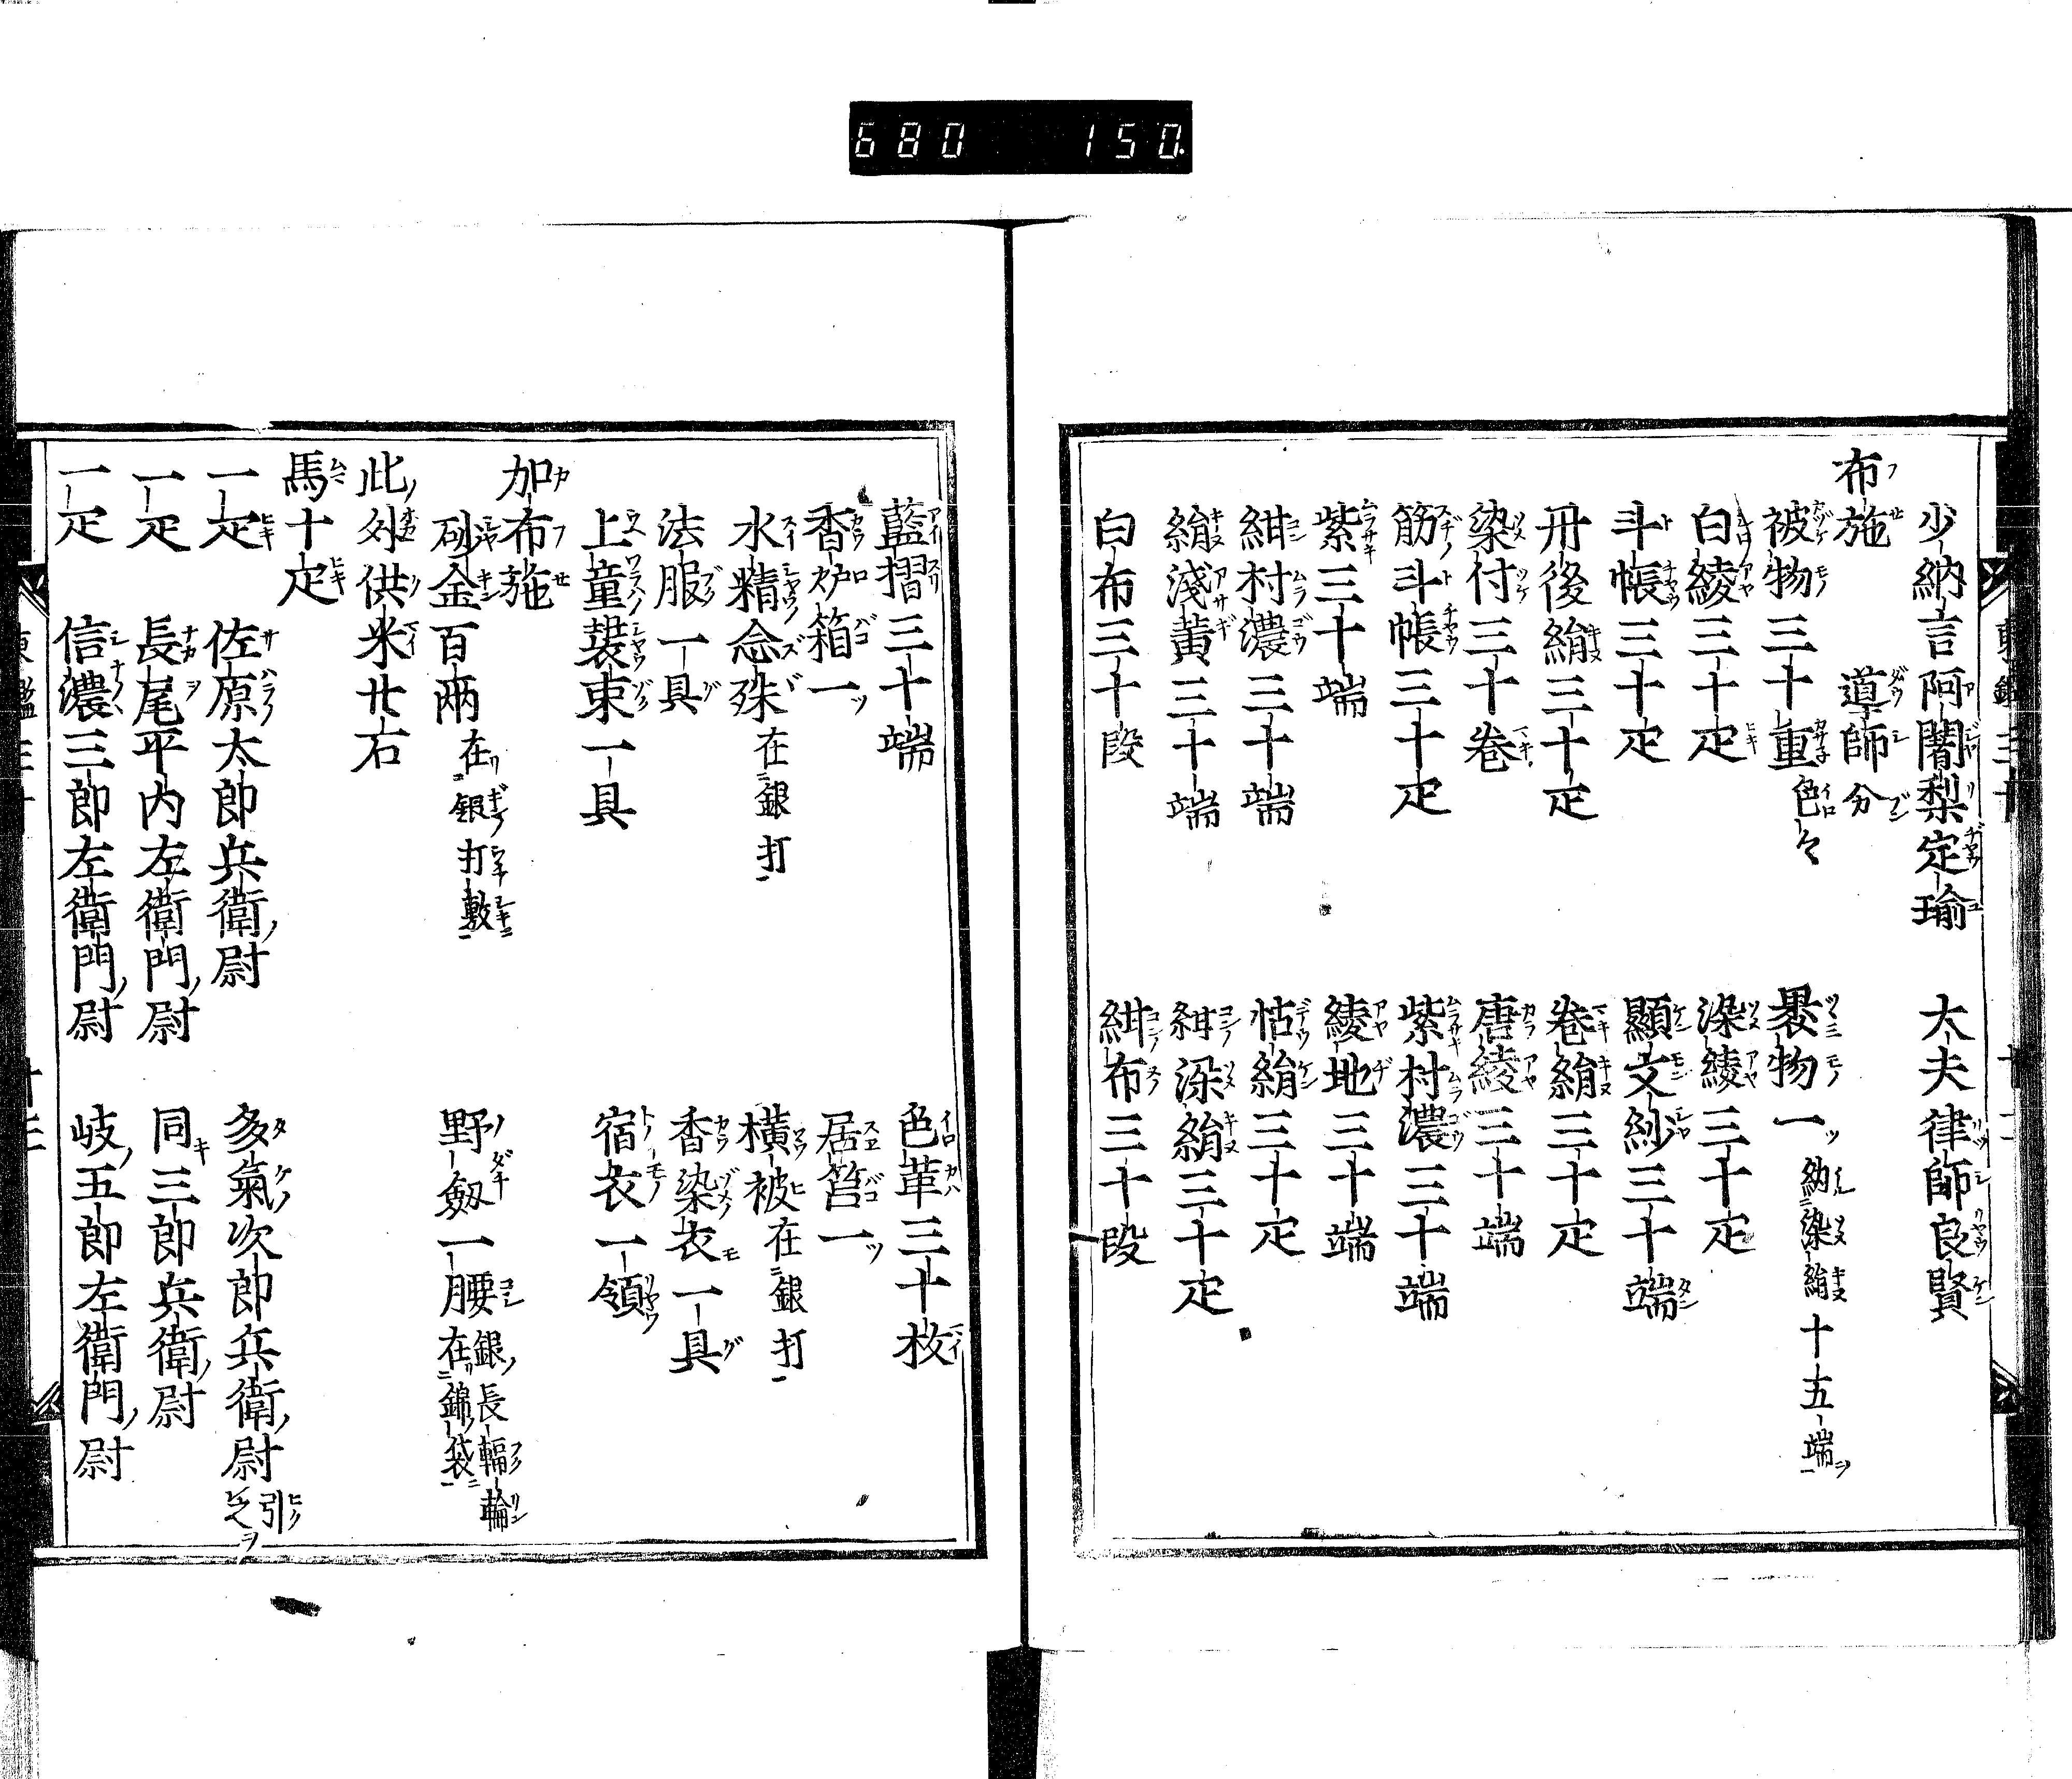 680 150
少納言阿闍梨定瑜 大夫律師良賢
布施 導師分
被物三十重色々 褁物一納染絹十五端
白綾三十疋 染綾三十疋
斗帳三十疋 顯文紗三十端
丹後絹三十疋 卷絹三十疋
染付三十卷 唐綾三十端
筋斗帳三十疋 紫村濃三十端
紫三十端 綾地三十端
紺村濃三十端 帖絹三十疋
絹淺黃三十端 紺染絹三十疋
白布三十段 紺布三十段
藍摺三十端 色革三十枚
香炉箱一 居筥一
水精念殊在銀打 橫被在銀打
法服一具 香染衣一具
上童裝束一具 宿衣一領
加布施
砂金百兩在銀打敷 野劔一腰銀長輻輪在錦袋
此外供米廿石
馬十疋
一疋 佐原太郎兵衛尉 多氣次郎兵衛尉引之
一疋 長尾平内左衛門尉 同三郎兵衛尉
一疋 信濃三郎左衛門尉 岐五郎左衛門尉